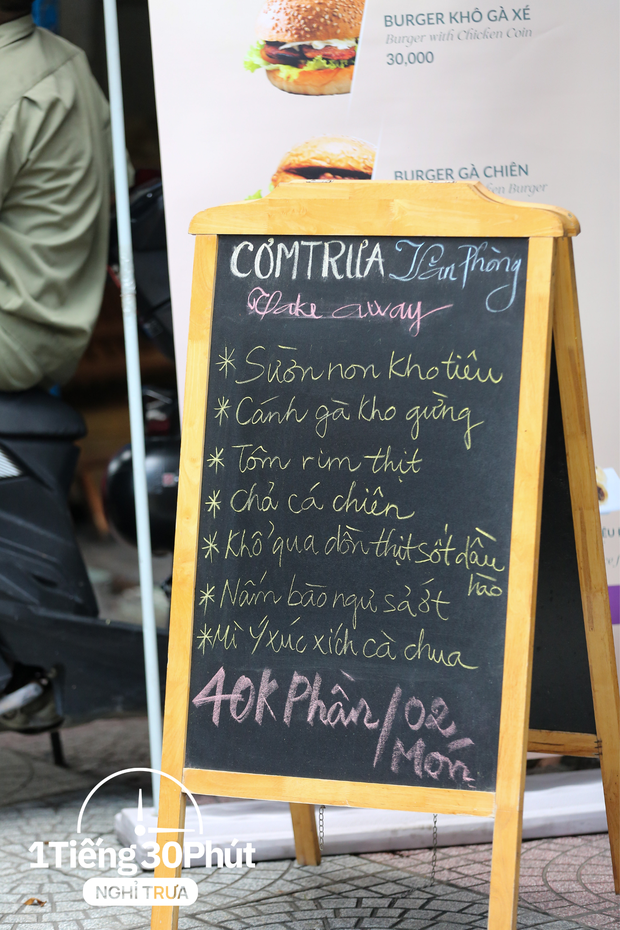 BURGER KHÔ GÀ XÉ
Burger with Chicken Coin
30,000
BURGER GÀ CHIÊN
Burger
CƠM TRƯA Văn Phòng
Take away
* Sườn non kho tiêu
* Cánh gà kho gừng
* Tôm rim thịt
* chả cá chiên
* Khổ qua dồn thịt sốt dầu
hào
* Nấm bào ngư sả ớt
* Mì Ý xúc xích cà chua
40K Phần/02
Món
1Tiếng 30Phút
NGHỈ TRƯA